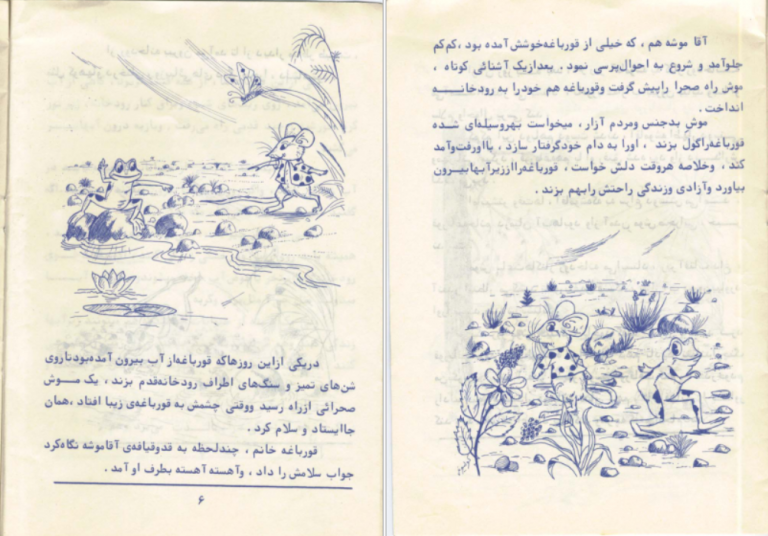 دریکی ازاین روزهاکه قورباغه‌از آب بیرون آمده‌بودتاروی
شن‌های تمیز و سنگ‌های اطراف رودخانه‌قدم بزند ، یک موش
صحرائی ازراه رسید ووقتی چشمش به قورباغه‌ی زیبا افتاد ،همان
جاایستاد و سلام کرد .
قورباغه خانم ، چندلحظه به قدوقیافه‌ی آقاموشه نگاه‌کرد
جواب سلامش را داد ، وآهسته آهسته بطرف او آمد .
۶
آقا موشه هم ، که خیلی از قورباغه‌خوشش آمده بود ،کم‌کم
جلوآمد و شروع به احوال‌پرسی نمود . بعدازیک آشنائی کوتاه ،
موش راه صحرا راپیش گرفت وقورباغه هم خودرا به رودخانه
انداخت .
موش بدجنس ومردم آزار ، میخواست بهروسیله‌ای شده
قورباغه‌راگول بزند ، اورا به دام خودگرفتار سازد ، بااورفت‌وآمد
کند ، وخلاصه هروقت دلش خواست ، قورباغه‌رااززیرآبهابیرون
بیاورد وآزادی وزندگی راحتش رابهم بزند .